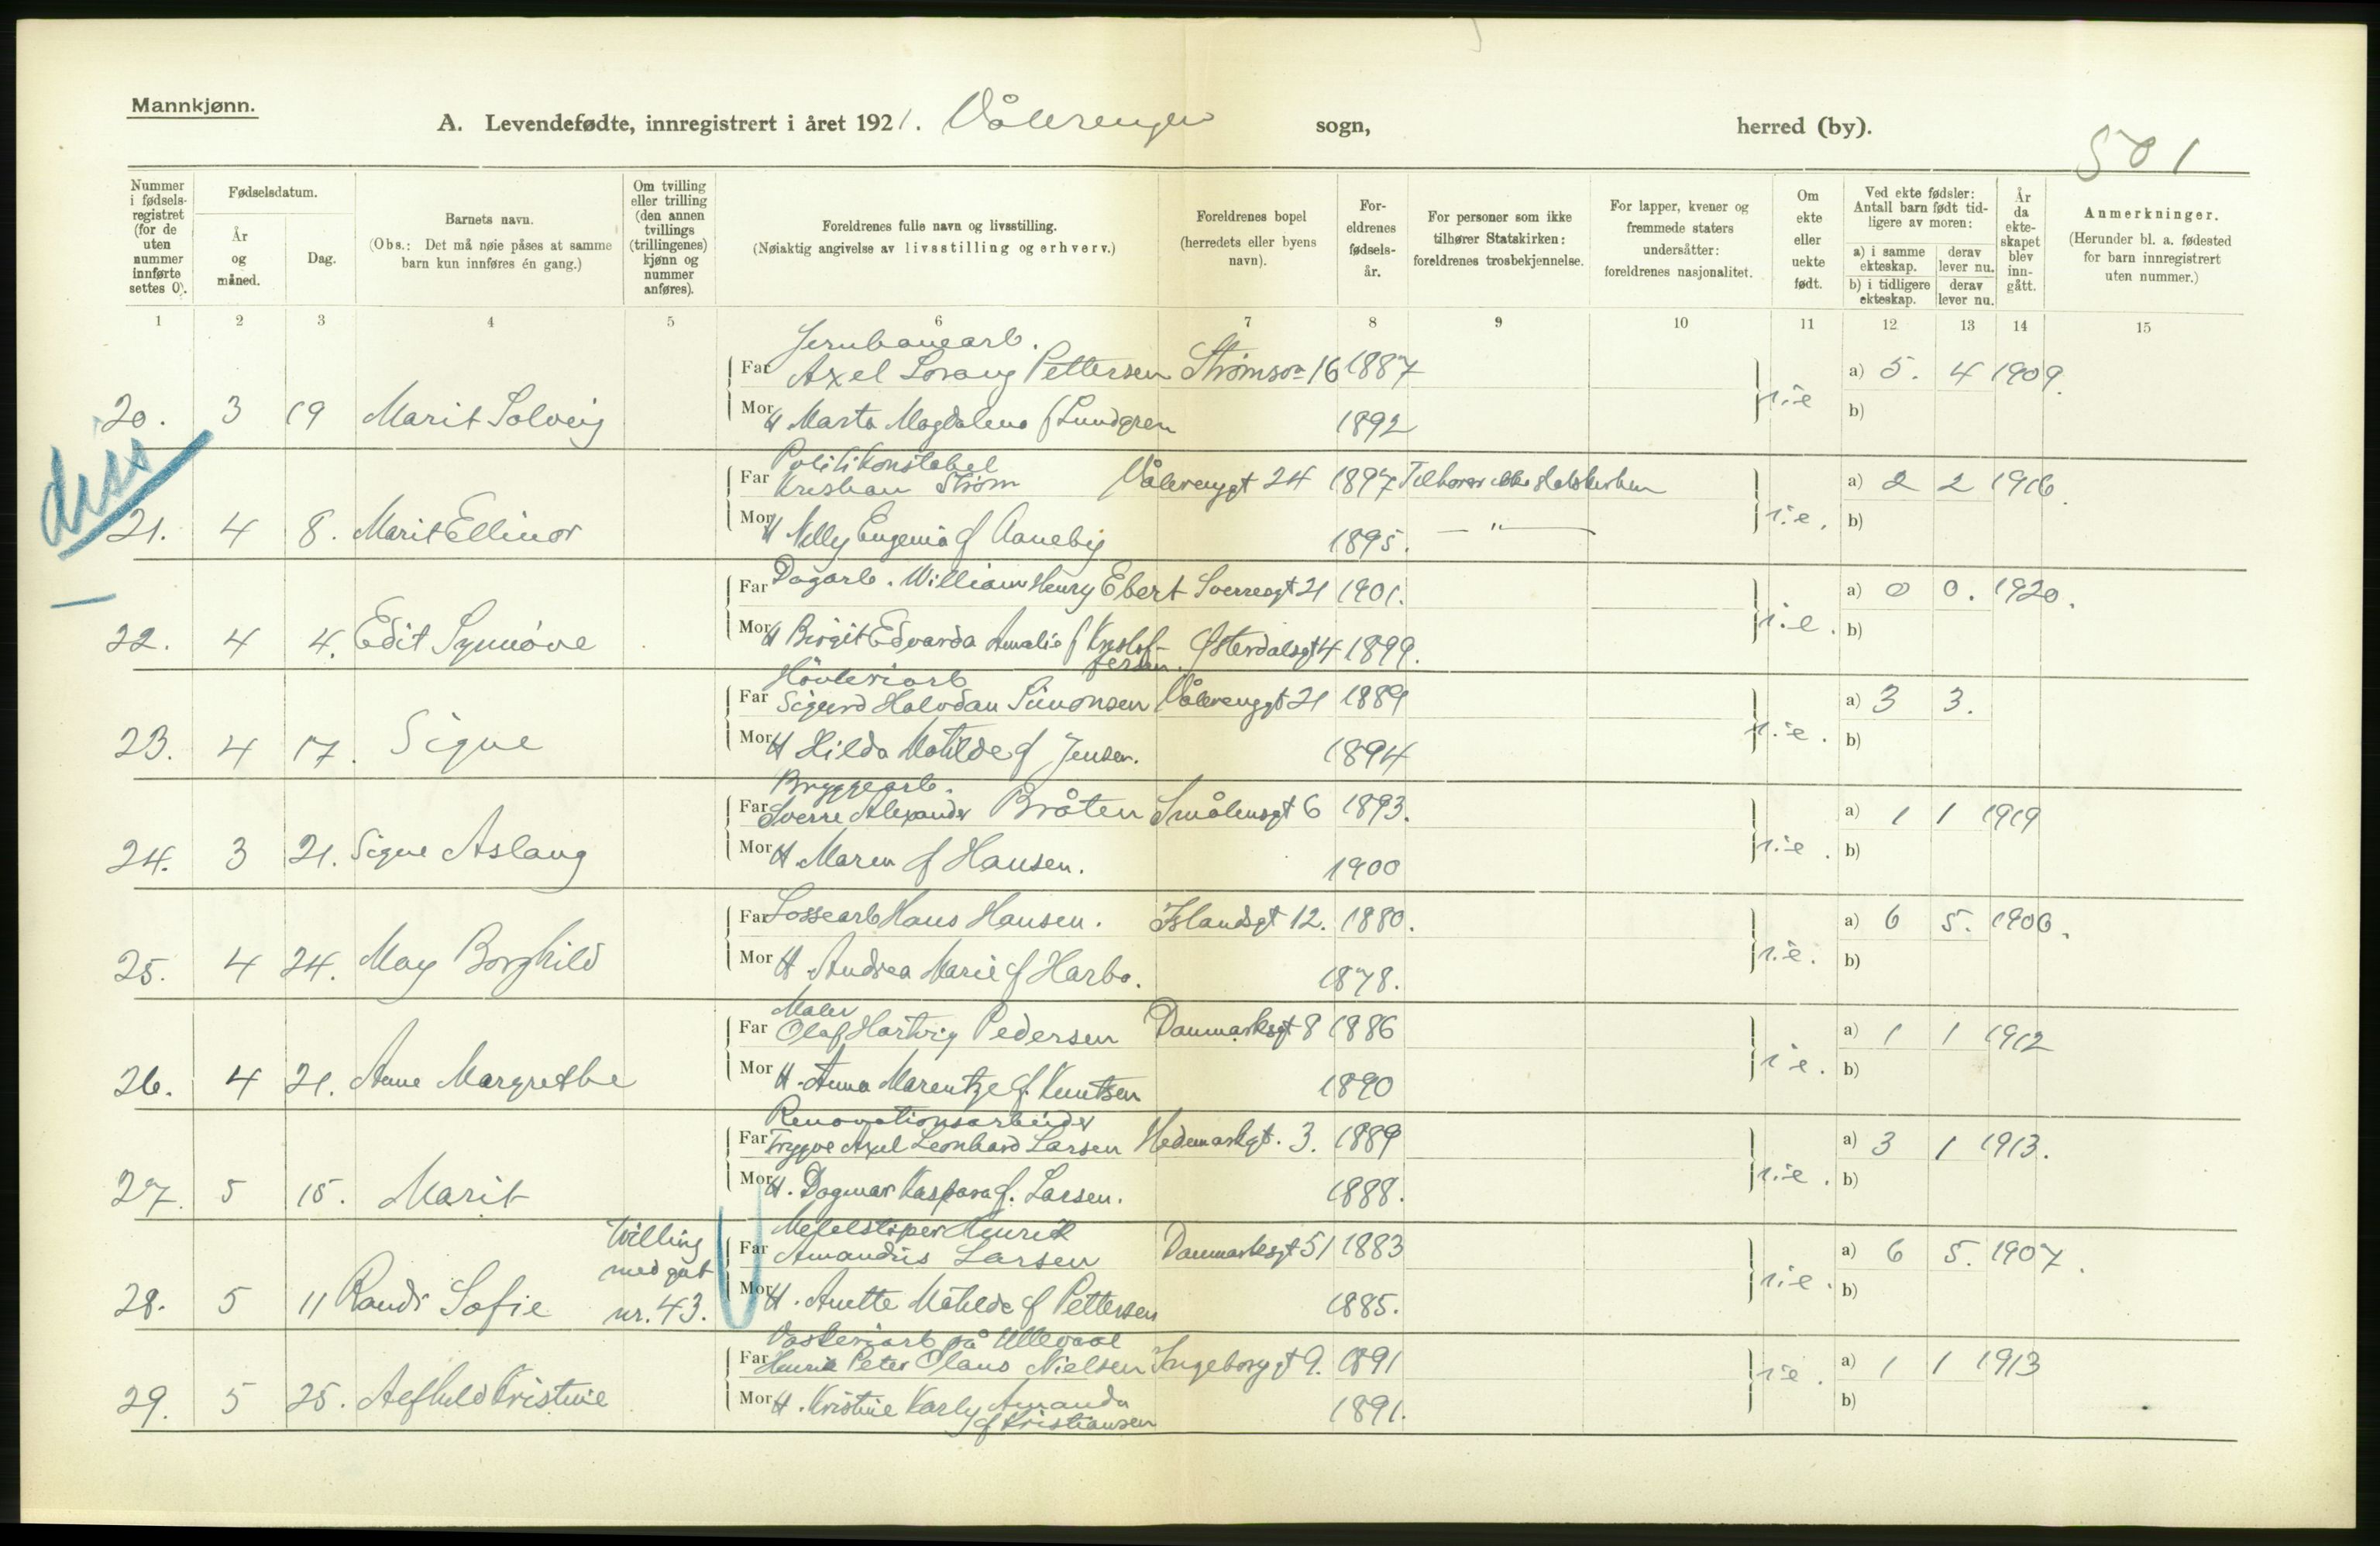 Mannkjønn.
A. Levendefødte, innregistrert i året 1921. Vålerengen sogn, herred (by).
501
Nummer i fødsels-registret (for de uten nummer innførte settes 0).
Fødselsdatum.
År og måned.
Dag.
Barnets navn.
(Obs.: Det må nøie påses at samme barn kun innføres én gang.)
Om tvilling eller trilling (den annen tvillings (trillingenes) kjønn og nummer anføres).
Foreldrenes fulle navn og livsstilling.
(Nøiaktig angivelse av livsstilling og erhverv.)
Foreldrenes bopel (herredets eller byens navn).
For-eldrenes fødsels-år.
For personer som ikke tilhører Statskirken: foreldrenes trosbekjennelse.
For lapper, kvener og fremmede staters undersåtter: foreldrenes nasjonalitet.
Om ekte eller uekte født.
Ved ekte fødsler: Antall barn født tid-ligere av moren:
a) i samme ekteskap. derav lever nu.
b) i tidligere ekteskap. derav lever nu.
År da ekte-skapet blev inn-gått.
Anmerkninger.
(Herunder bl. a. fødested for barn innregistrert uten nummer.)
1 2 3 4 5 6 7 8 9 10 11 12 13 14 15
Jernbanearb.
Far Axel Lorang Pettersen Strømsv 16 1887 a) 5. 4 1909.
20. 3 19 Marit Solveig Mor H Marta Magdalena f Lundgren 1892 b)
Politikonstabel
Far Kristian Strøm Vålerenggt 24 1897 Tilhører ikke statskirken a) 2 2 1916
21. 4 8. Marit Ellinor Mor H Nelly Eugenia f Aaneby 1895. — " — b)
Far Dagarb. William Henry Ebert Sverresgt 21 1901. a) 0 0. 1920.
22. 4 4. Edit Synnøve Mor H Birgit Edvarda Amalie f Kristof- Østerdalsgt 4 1899. b)
fersen.
Høvleriarb
Far Sigurd Halvdan Simonsen Vålerenggt 21 1889 a) 3 3.
23. 4 17. Signe Mor H Hilda Matilde f Jensen. 1894 b)
Bryggearb.
Far Sverre Alexander Bråten Smålensgt 6 1893. a) 1 1 1919
24. 3 21. Signe Aslaug Mor H. Maren f Hansen. 1900 b)
Far Lossearb Hans Hansen. Islandsgt 12. 1880. a) 6 5. 1906.
25. 4 24. May Borghild Mor H. Andrea Marie f Harbo. 1878. b)
Maler
Far Olaf Hartvig Pedersen Danmarksgt 8 1886 a) 1 1 1912
26. 4 21. Anne Margrethe Mor H. Anna Marentze f. Knutsen 1890 b)
Renovationsarbeider
Far Trygve Axel Leonhard Larsen Hedemarkgt. 3. 1889 a) 3 1 1913.
27. 5 15. Marit Mor H. Dagmar Kaspara f. Larsen. 1888. b)
Henrik
Far Amandus Larsen Danmarksgt 51 1883 a) 6 5. 1907.
28. 5 11 Randi Sofie Tvilling med gut nr. 43. Mor H. Anette Matilde f Pettersen 1885. b)
Vaskeriarb på Ullevaal
Far Henrik Peter Olaus Nielsen Ingeborggt 9. 1891 a) 1 1 1913
29. 5 25. Alfhild Kristine Mor H. Kristine Karly Amanda 1891. b)
f Kristiansen